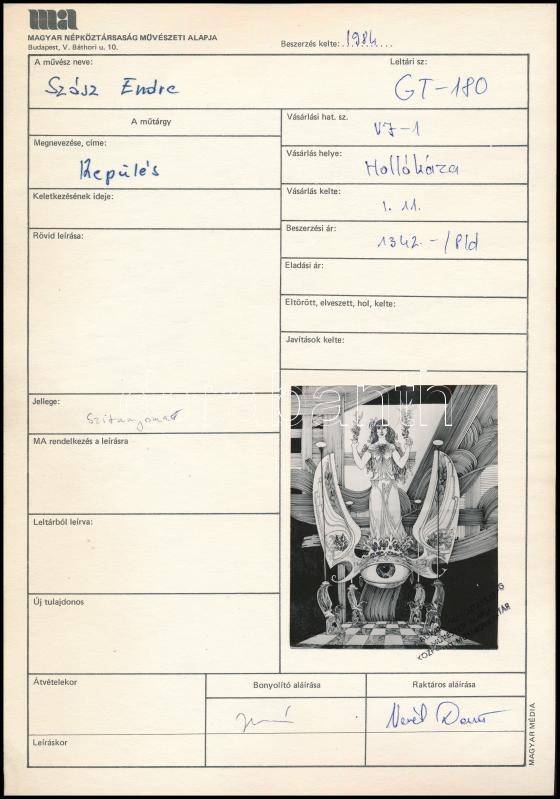 ma
MAGYAR NÉPKÖZTÁRSASÁG MŰVÉSZETI ALAPJA
Budapest, V. Báthori u. 10.
Beszerzés kelte: 1984
A művész neve:
Szász Endre
Leltári sz:
GT-180
A műtárgy
Vásárlási hat. sz.
VJ-1
Megnevezése, címe:
Repülés
Vásárlás helye:
Hollóháza
Keletkezésének ideje:
Vásárlás kelte:
I. 11.
Rövid leírása:
Beszerzési ár:
1342.-/Pld
Eladási ár:
Eltörött, elveszett, hol, kelte:
Javítások kelte:
darabanth
Jellege:
Szitanyomat
MA rendelkezés a leírásra
Leltárból leírva:
Új tulajdonos
Átvételekor
Bonyolító aláírása
Raktáros aláírása
Leíráskor
MAGYAR MÉDIA